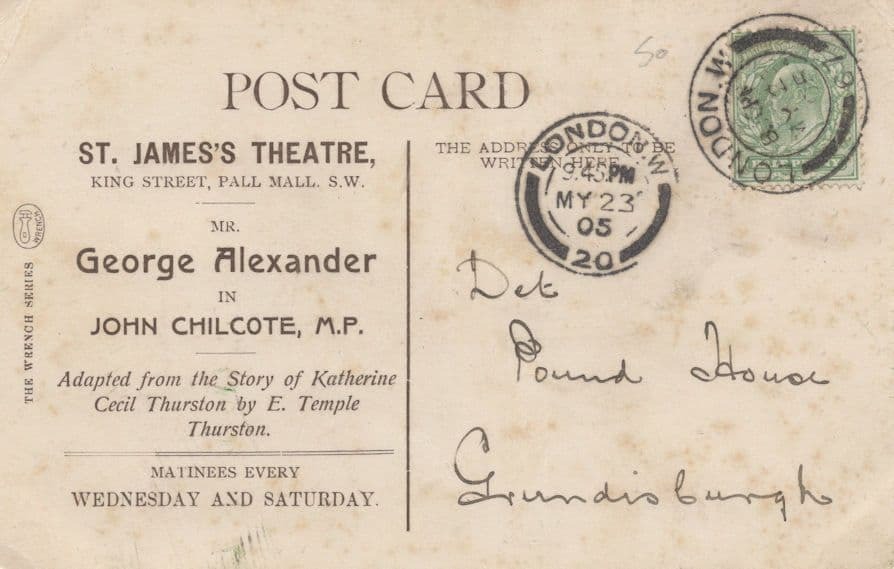 POST CARD
50
ST. JAMES'S THEATRE,
KING STREET, PALL MALL. S.W.
MR.
George Alexander
IN
JOHN CHILCOTE, M.P.
Adapted from the Story of Katherine
Cecil Thurston by E. Temple
Thurston.
MATINEES EVERY
WEDNESDAY AND SATURDAY.
WRENCH
THE WRENCH SERIES
THE ADDRESS ONLY TO BE
WRITTEN HERE
LONDON.W
9.45PM
MY 23
05
20
LONDON.W
19
Det
Pound House
Grundisburgh